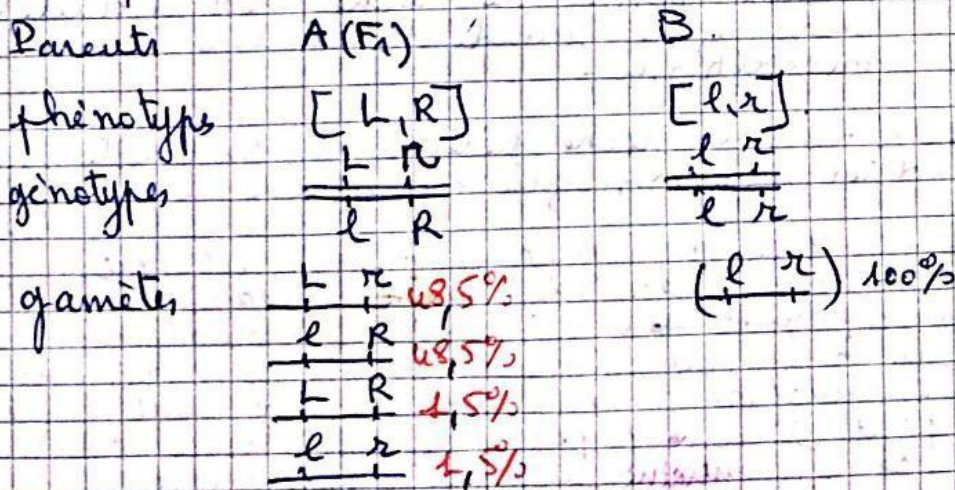 Parents A (F1) B
phénotypes [L, R] [l, r]
L r
l r
génotypes
l R
l r
gamètes L r 48,5% (l r) 100%
l R 48,5%
L R 1,5%
l r 1,5%